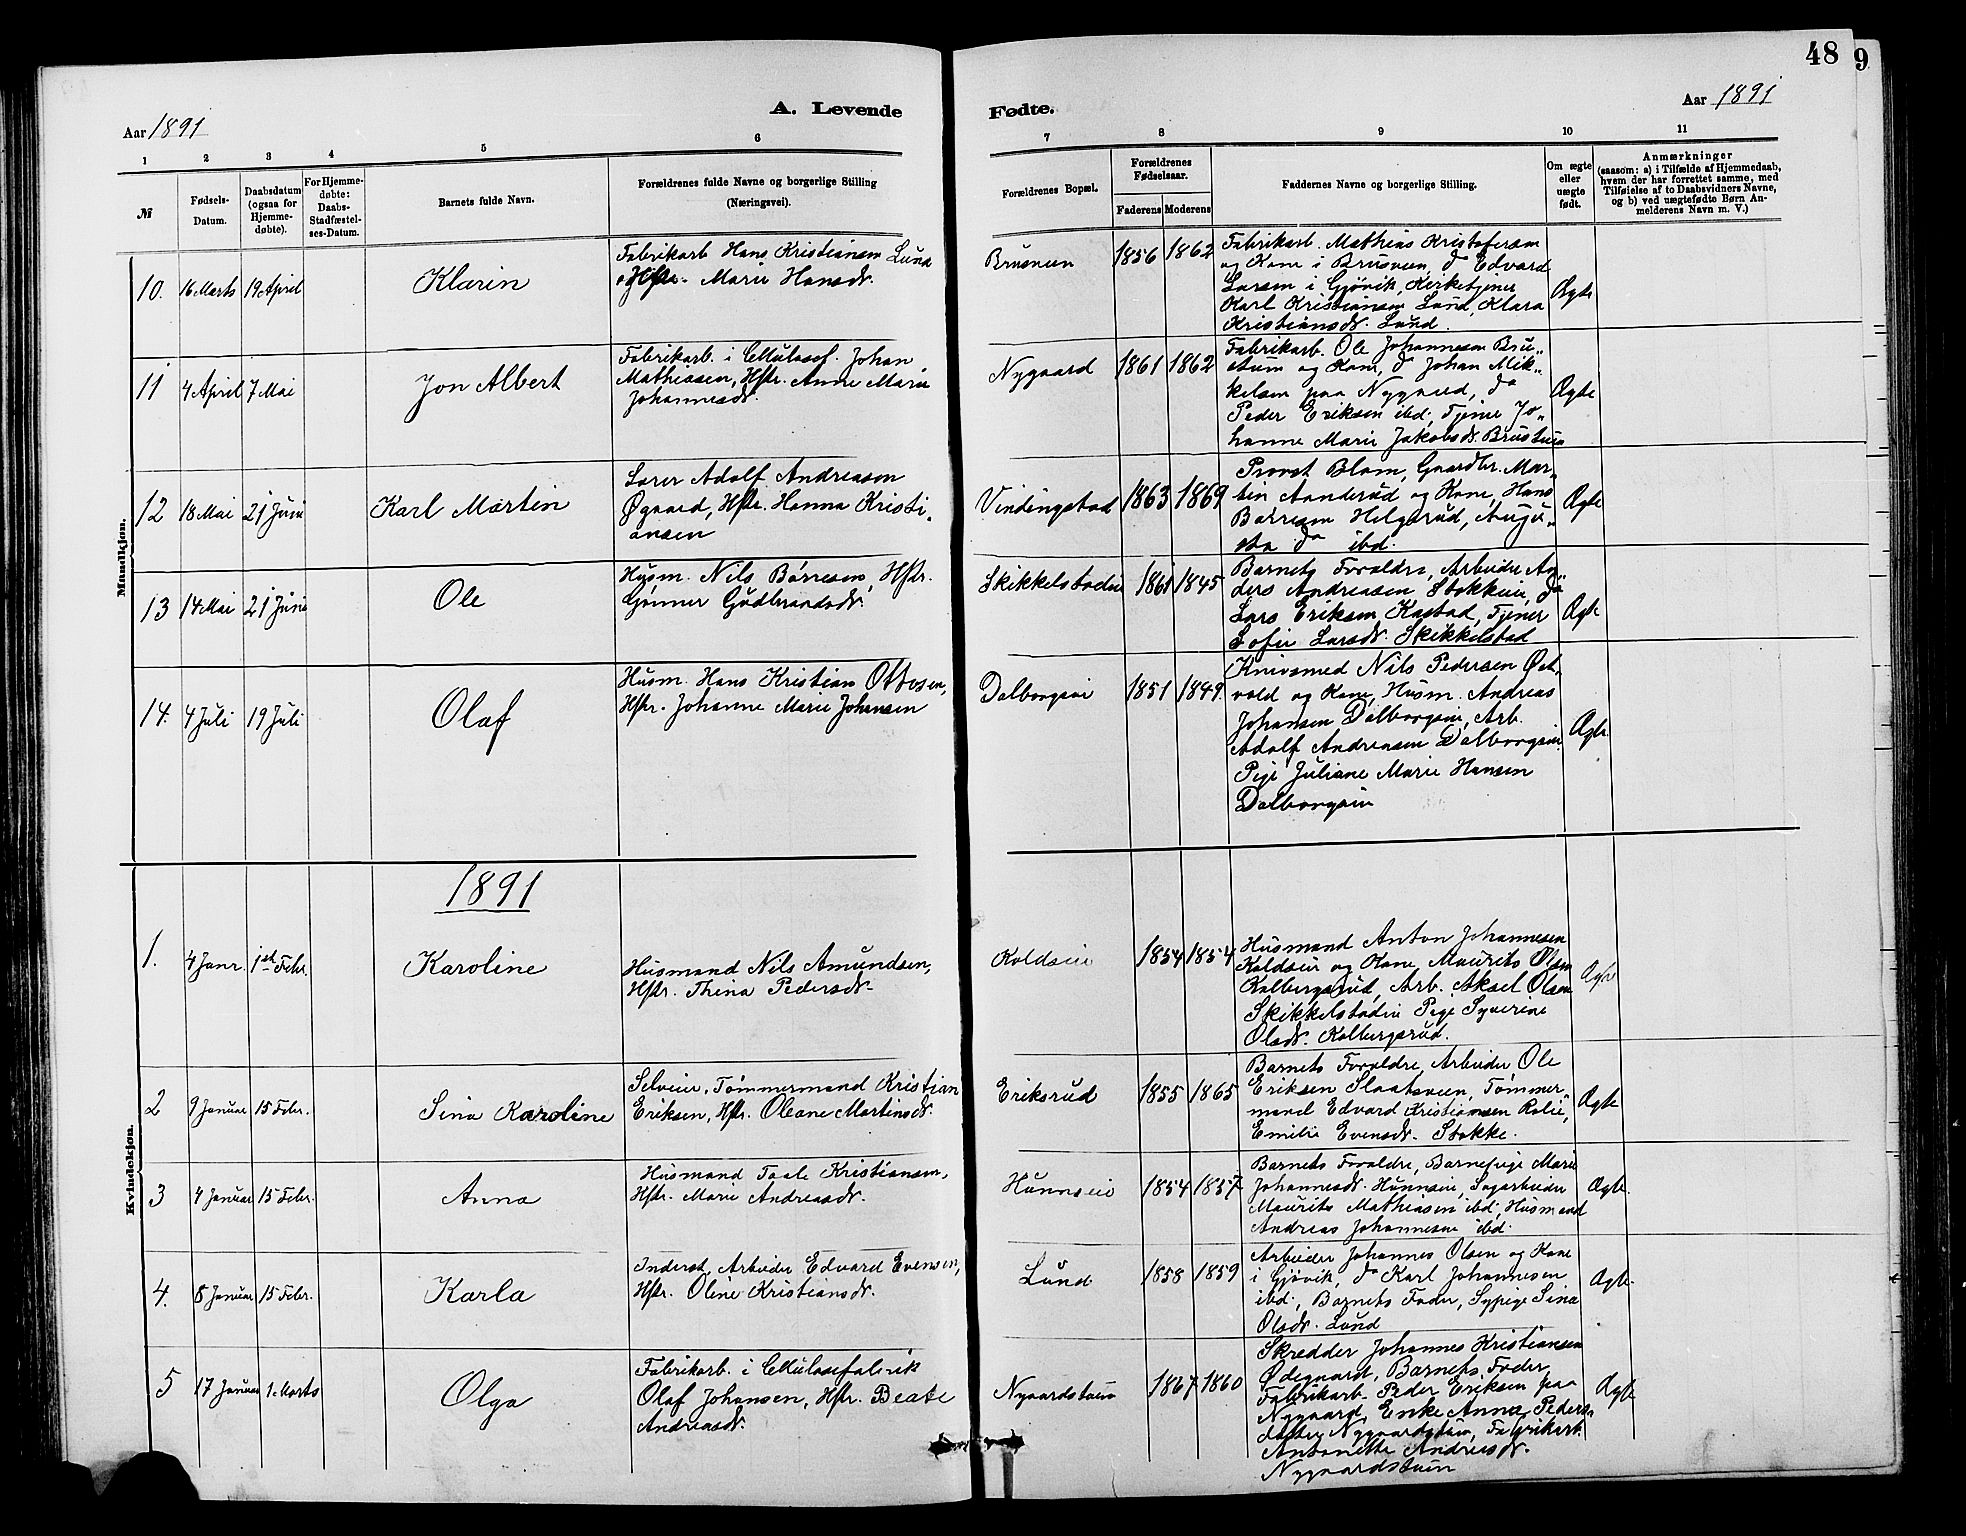 48
9
A. Levende
Fødte.
Aar 1891
Aar 1891
1 2 3 4 5 6 7 8 9 10 11
№
Fødsels-
Datum.
Daabsdatum
(ogsaa for
Hjemme-
døbte).
For Hjemme-
døbte:
Daabs-
Stadfæstel-
ses-Datum.
Barnets fulde Navn.
Forældrenes fulde Navne og borgerlige Stilling
(Næringsvei).
Forældrenes Bopæl.
Forældrenes
Fødselsaar.
Faderens Moderens
Faddernes Navne og borgerlige Stilling.
Om ægte
eller
uægte
født.
Anmærkninger
(saasom: a) i Tilfælde af Hjemmedaab,
hvem der har forrettet samme, med
Tilføielse af to Daabsvidners Navne,
og b) ved uægtefødte Børn An-
melderens Navn m. V.)
Mandkjøn.
10. 16 Marts 19 April
Klarin
Fabrikarb Hans Kristiansen Lund
Hstr. Marie Hansdr.
Brusveen 1856 1862
Fabrikarb. Mathias Kristofersen
og Kone i Brusveen, do Edvard
Larsen i Gjövik, Kirketjener
Karl Kristiansen Lund, Klara
Kristiansdr. Lund.
Ægte
11 4 April 7 Mai
Jon Albert
Fabrikarb. i Cellulosef. Johan
Mathiesen, Hstr. Anne Marie
Johannesdr.
Nygaard 1861 1862
Fabrikarb. Ole Johannesen Bru-
stum og Kone, do Johan Mik-
kelsen paa Nygaard, do
Peder Eriksen ibd; Tjene Jo-
hanne Marie Jakobsdr. Brustuen
Ægte
12 18 Mai 21 Juni
Karl Martin
Lærer Adolf Andreasen
Øgaard, Hstr. Hanna Kristi-
ansen
Vindingstad 1863 1869
Provst Blom, Gaardbr. Mar-
tin Aanderud og Kone, Hans
Børresen Helgerud, Augu-
sta do ibd.
Ægte
13 14 Mai 21 Juni
Ole
Husm. Nils Børresen, Hstr.
Gunner Gudbrandsdr.
Skikkelstadeie 1861 1845
Barnets Forældre, Arbeider An-
ders Andreasen Stokkeie, do
Lars Eriksen Kastad, Tjener
Sofie Larsdr. Skikkelstad
Ægte
14. 4 Juli 19 Juli
Olaf
Husm. Hans Kristian Ottosen,
Hstr. Johanne Marie Johansen
Dalborgseie 1851 1849.
Knivsmed Nils Pedersen Øst-
vold og Kone, Husm. Andreas
Johansen Dalborgseie, Arb.
Adolf Andreasen Dalborgseie
Pige Juliane Marie Hansen
Dalborgseie
Ægte
Kvindekjøn.
1891
1. 4 Janr. 1st Febr.
Karoline
Husmand Nils Amundsen,
Hstr. Thina Pedersdr.
Koldseie 1854 1854
Husmand Anton Johannesen
Koldseie og Kone, Maurits Olsen
Kolbergsrud, Arb. Aksel Olsen
Skikkelstadeie Pige Syverine
Olsdr. Kolbergsrud.
Ægte
2 9 Januar 15 Febr.
Sina Karoline
Selveier, Tømmermand Kristian
Eriksen, Hstr. Oleane Martinsdr.
Eriksrud 1855 1865
Barnets Forældre, Arbeider Ole
Eriksen Slaatsveen, Tømmer-
mand Edvard Kristiansen Rolie,
Emilie Evensdr. Stokke.
Ægte
3 4 Januar 15 Febr.
Anna
Husmand Taale Kristiansen,
Hstr. Marie Andreasdr.
Hunnseie 1854 1857
Barnets Forældre, Barnepige Marie
Johannesdr. Hunnseie, Sagarbeider
Maurits Mathiasen ibd, Husmand
Andreas Johannesen ibd.
Ægte.
4. 8 Januar 15 Febr.
Karla
Inderst, Arbeider Edvard Evensen,
Hstr. Oline Kristiansdr.
Lund 1858 1859
Arbeider Johannes Olsen og Kone
i Gjövik, do Karl Johannesen
ibd., Barnets Fader, Sypige Sina
Olsdr. Lund
Ægte.
5 17 Januar 1. Marts
Olga
Fabrikarb. i Cellulosefabrik
Olaf Johansen, Hstr. Beate
Andreasdr.
Nygaardstuen 1867 1860
Skredder Johannes Kristiansen
Ødegaard, Barnets Fader,
Fabrikarb. Peder Eriksen paa
Nygaard, Enke Anna Peders-
datter Nygaardstuen, Fabrikarb.
Antonette Andreasdr.
Nygaardstuen
Ægte